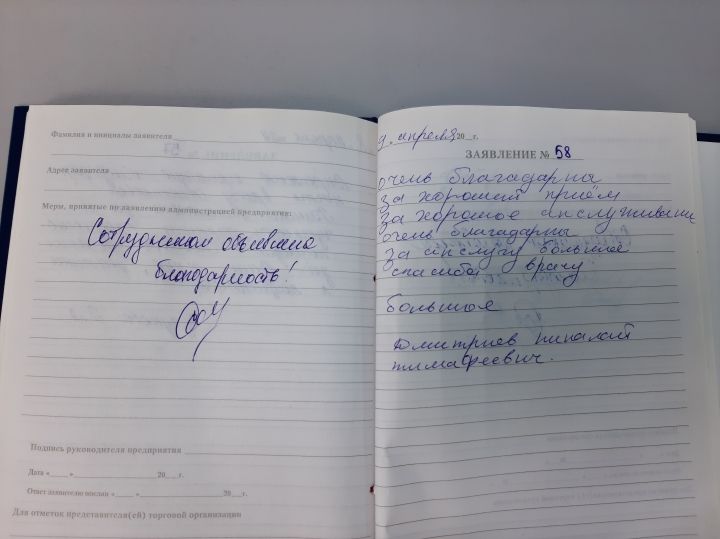 Фамилия и инициалы заявителя
Адрес заявителя
Меры, принятые по заявлению администрацией предприятия:
Сотрудникам объявлена
благодарность!
Подпись руководителя предприятия
Дата «____» ____________ 20___г.
Ответ заявителю послан «____» ____________ 20___г.
Для отметок представителя(ей) торговой организации
9. апреля 20__г.
ЗАЯВЛЕНИЕ № 58
очень благадарна
за хороший приём
за хорошое апслуживание
очень благадарны
за апслугу большое
спасиба врачу
большое
Дмитриев николай
тимафеевич.